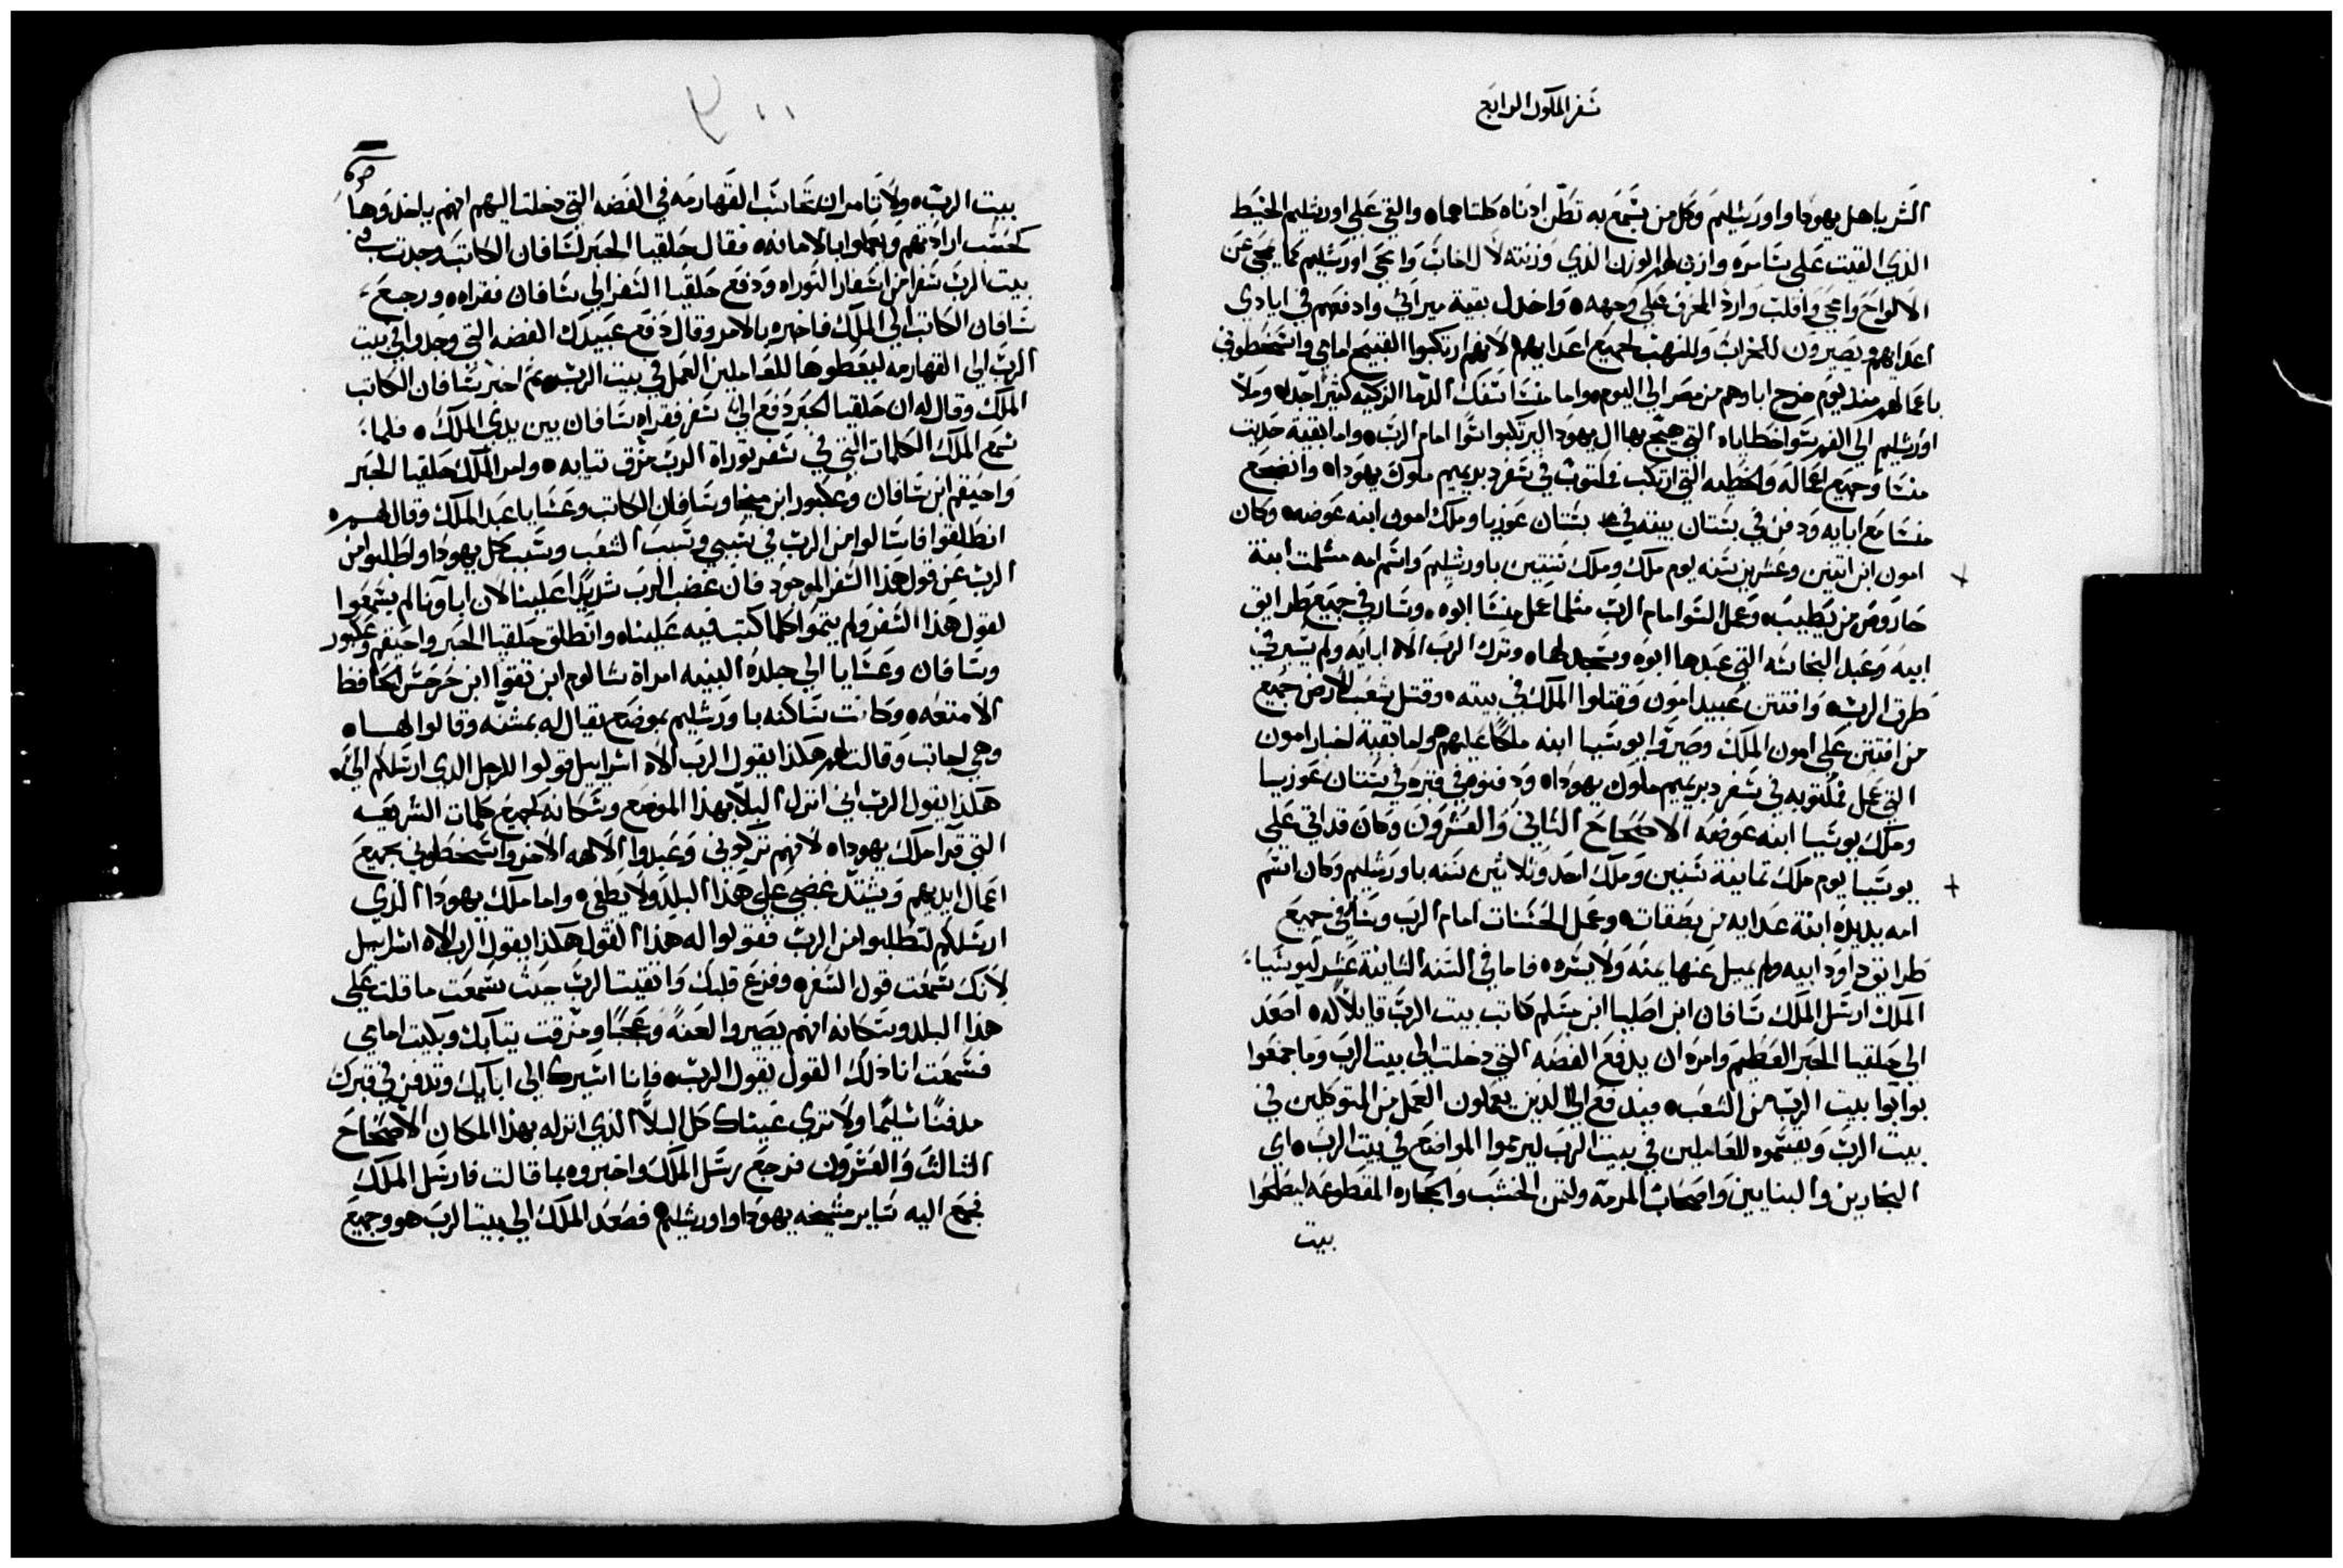 سفر الملوك الرابع
الشر ياهل يهودا واورشليم وكل من يسمع به تطن ادناه كلتاهما٥ والقي علي اورشليم الخيط
الذي القيت علي سامره وازن لهم الوزن الذي وزنته لال اخاب وامحي اورشليم كما يمحي عن
الالواح وامحي واقلب وارد المحرف علي وجهه٥ واخدل بقية ميراتي وادفعهم في ايادي
اعدايهم ويصيرون للخراب وللنهب لجميع اعدايهم لانهم ارتكبوا القبيح امامي واسخطوني
باعمالهم منذ يوم خرج اباوهم من مصر الي اليوم٥ واما منسا سفك الدما الزكيه كثيرا جدا٥ وملا
اورشليم الي الفم سوا خطاياه التي هيج بها ال يهودا ليرتكبوا سوا امام الرب٥ واما بقية حديت
منسا وجميع اعماله والخطيه التي ارتكب فمكتوب في سفر دبريميم ملوك يهودا٥ وانضجع
منسا مع ابايه ودفن في بستان بيته في بستان عوزيا وملك امون ابنه عوضه٥ وكان
امون ابن اتنين وعشرين سنه يوم ملك وملك سنتين باورشليم واسم امه مسلمت ابنة
حاروص من يطيبه وعمل السوا امام الرب مثلما عمل منسا ابوه٥ وسار في جميع طرايق
ابيه وعبد النجاسه التي عبدها ابوه وسجد لها٥ وترك الرب الاه ابايه ولم يسير في
طرق الرب٥ وافتتن عبيد امون وقتلوا الملك في بيته٥ وقتل شعب الارض جميع
من افتتن علي امون الملك وصيروا يوسيا ابنه ملكا عليهم٥ واما بقية اخبار امون
التي عمل فمكتوبه في سفر دبريميم ملوك يهودا٥ ودفنوه في قبره في بستان عوزيا
وملك يوسيا ابنه عوضه الاصحاح الثاني والعشرون وكان قد اتي علي
يوسيا يوم ملك تمانية سنين وملك احد وثلاثين سنه باورشليم وكان اسم
امه يديده ابنة عدايه من بصقات٥ وعمل الحسنات امام الرب وسار في جميع
طرايق داود ابيه ولم يميل عنها يمنه ولا يسره٥ فاما في السنه الثامنة عشر ليوسيا
الملك ارسل الملك سافان ابن اصليا ابن مسلم كاتب بيت الرب قايلا له٥ اصعد
الي حلقيا الحبر العظيم وامره ان يدفع الفضه التي دخلت الي بيت الرب وما جمعوا
بوابوا بيت الرب من الشعب٥ فيدفع الي الذين يعملون العمل من المتوكلين في
بيت الرب ويقسموه للعاملين في بيت الرب ليرمموا المواضع في بيت الرب٥ اي
النجارين والبنايين واصحاب المرمه ولتمن الخشب والحجاره المقطوعه ليصلحوا
بيت
بيت الرب٥ ولا تامر ان تحاسب القهارمه في الفضه التي دخلت اليهم انهم ياخدوها
كحسب ارادتهم ويعملوا بالامانه٥ فقال حلقيا الحبر لسافان الكاتب وجدت في
بيت الرب سفرا من اسفار التوراه ودفع حلقيا السفر الي سافان فقراه٥ ورجع
سافان الكاتب الي الملك فاخبره بالامر وقال دفع عبيدك الفضه التي وجدوا في بيت
الرب الي القهارمه ليعطوها للعاملين العمل في بيت الرب٥ تم اخبر سافان الكاتب
الملك وقال له ان حلقيا الحبر دفع الي سفر فقراه سافان بين يدي الملك٥ فلما
سمع الملك الكلمات التي في سفر توراة الرب مزق تيابه٥ وامر الملك حلقيا الحبر
واحيقم ابن سافان وعكبور ابن ميخا وسافان الكاتب وعسايا عبد الملك وقال لهم٥
انطلقوا فاسالوا من الرب في سببي وسبب الشعب وسبب كل يهودا واطلبوا من
الرب عن قول هذا السفر الموجود فان غضب الرب شديدا علينا لان اباونا لم يسمعوا
لقول هذا السفر ولم يتموا كلما كتب فيه علينا٥ وانطلق حلقيا الحبر واحيقم وعكبور
وسافان وعسايا الي جلده النبيه امراة شالوم ابن تقوا ابن حرحس الحافظ
الامتعه٥ وكانت ساكنه باورشليم بموضع يقال له بمشنه وقالوا لها٥
وهي اجابت وقالت لهم هكذا يقول الرب الاه اسراييل قولوا للرجل الدي ارسلكم الي٥
هكذا يقول الرب اني انزل البلا بهذا الموضع وسكانه لجميع كلمات الشريعه
التي قرا ملك يهودا٥ لانهم تركوني وعبدوا الالهه الاخر واسخطوني بجميع
اعمال ايديهم ويشتد غضبي علي هذا البلد ولا يطفي٥ واما ملك يهودا الذي
ارسلكم لتطلبوا من الرب فقولوا له هذا القول هكذا يقول الرب الاه اسراييل
لانك سمعت قول السفر٥ وفزع قلبك واتقيت الرب حيث سمعت ما قلت علي
هذا البلد وسكانه انهم يصيروا لعنة وعجبا ومزقت تيابك وبكيت امامي
فسمعت انا ذلك القول يقول الرب٥ فانا اسيرك الي ابايك وتدفن في قبرك
مدفنا سليما ولا تري عيناك كل البلا الذي انزله بهذا المكان الاصحاح
الثالث والعشرون فرجع رسل الملك واخبروه بما قالت فارسل الملك
فجمع اليه ساير مشيخه يهودا واورشليم٥ فصعد الملك الي بيت الرب هو وجميع